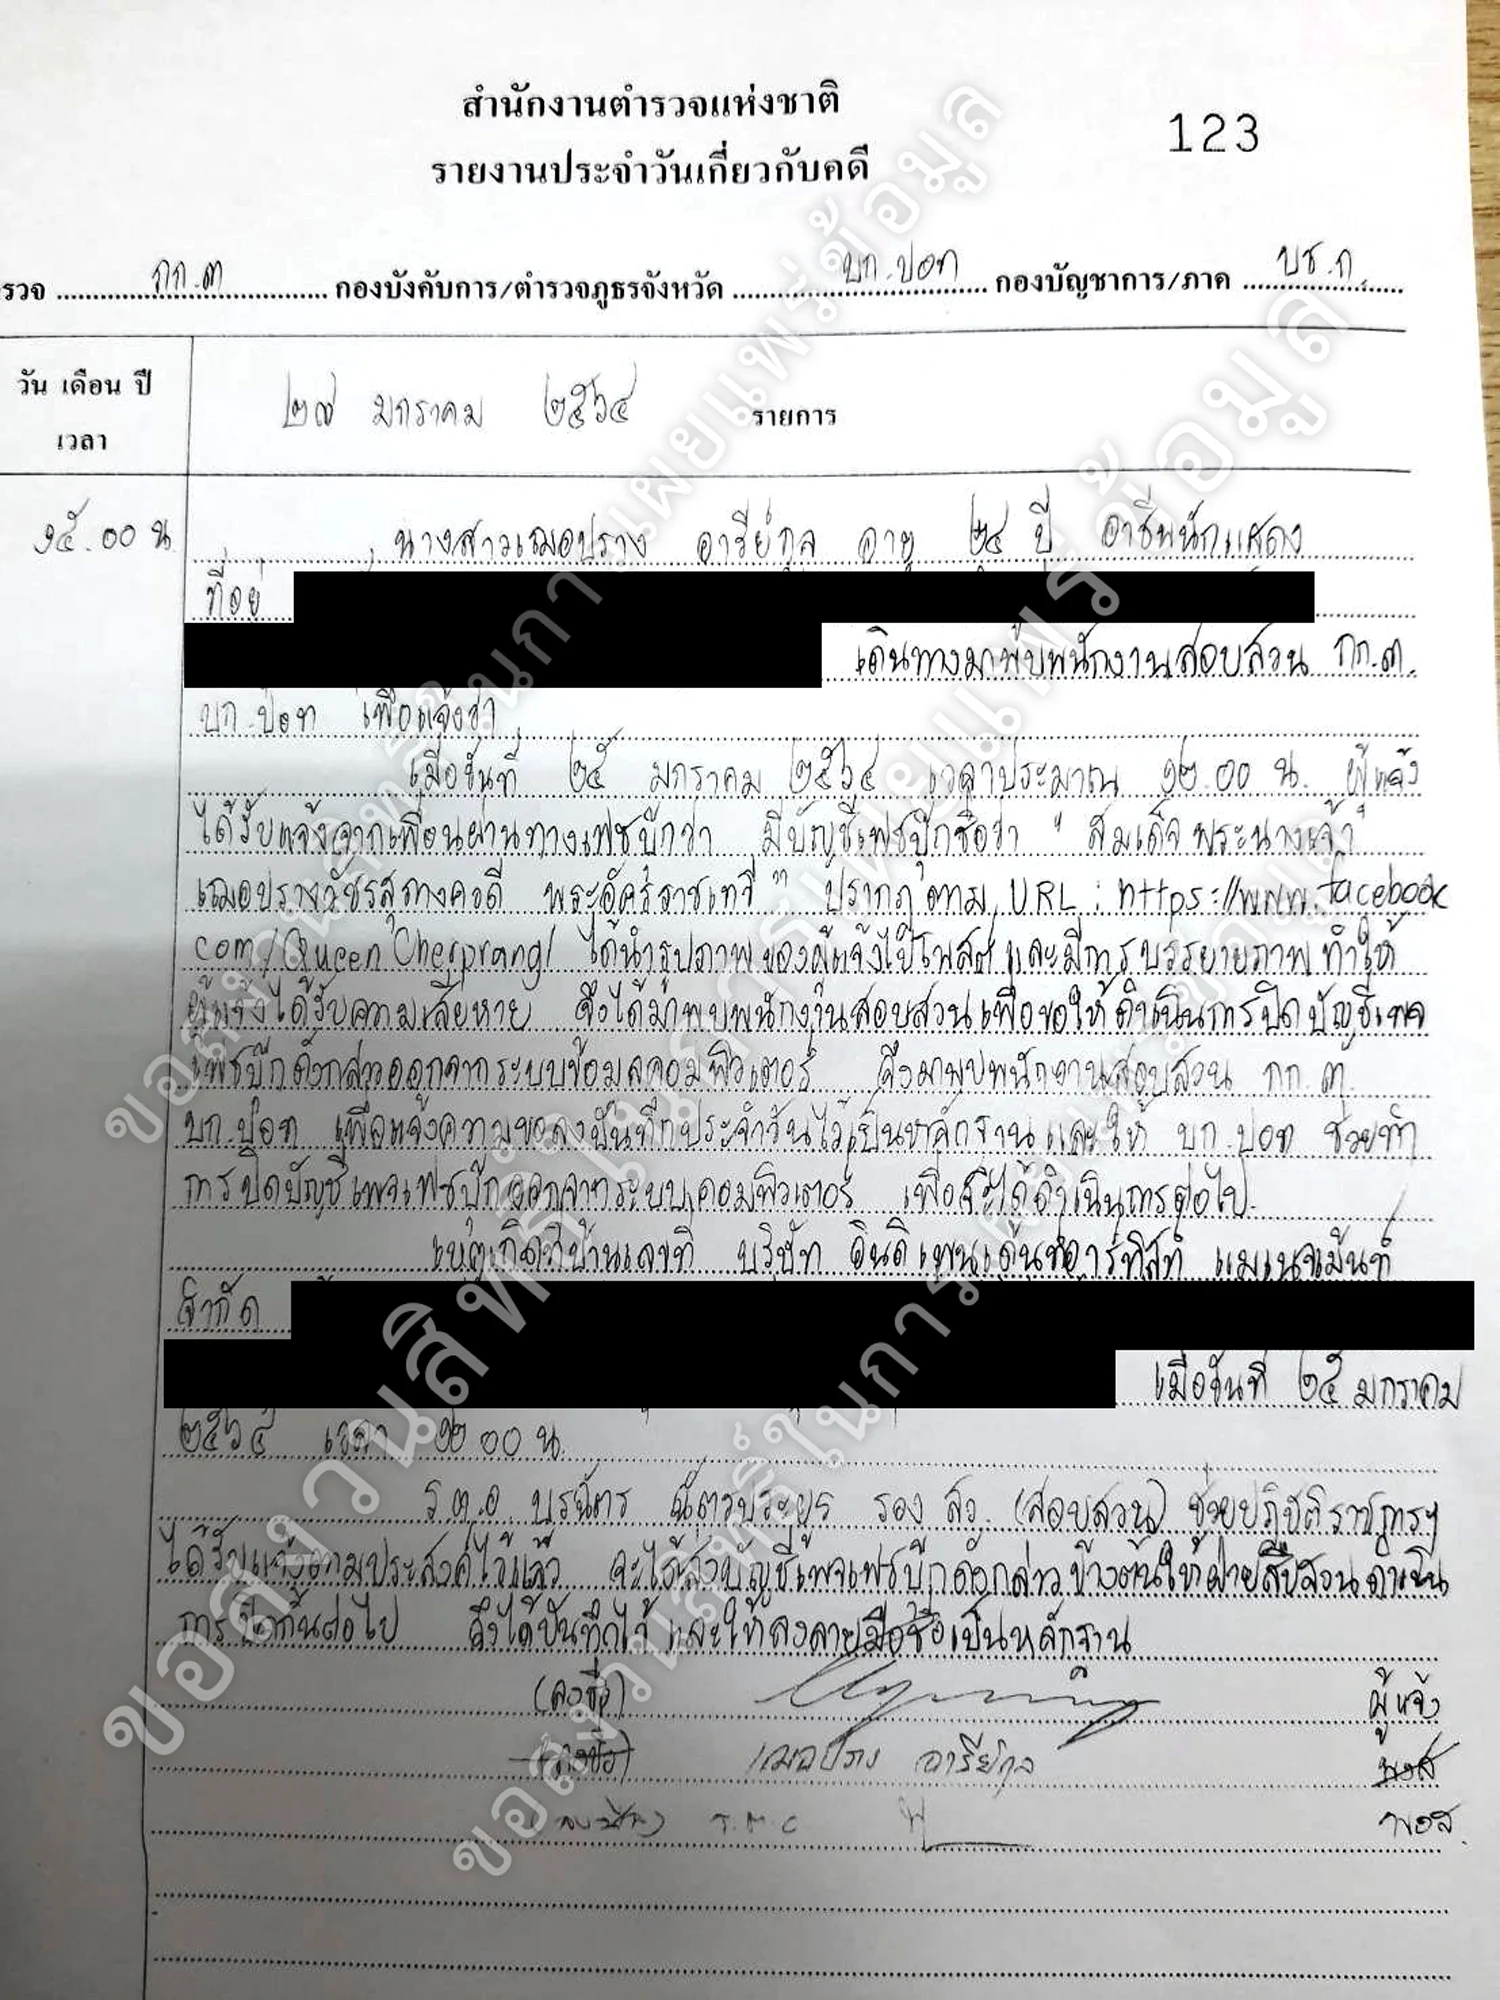 สำนักงานตำรวจแห่งชาติ
123
รายงานประจำวันเกี่ยวกับคดี
รวจ กก.๓ กองบังคับการ/ตำรวจภูธรจังหวัด บก.ปอท กองบัญชาการ/ภาค บช.ก
วัน เดือน ปี
เวลา
๒๗ มกราคม ๒๕๖๔ รายการ
๑๕.๐๐ น. นางสาวเฌอปราง อารีย์กุล อายุ ๒๔ ปี อาชีพนักแสดง
ที่อยู่
เดินทางมาพบพนักงานสอบสวน กก.๓.
บก.ปอท เพื่อแจ้งว่า
เมื่อวันที่ ๒๕ มกราคม ๒๕๖๔ เวลาประมาณ ๑๒.๐๐ น. ผู้แจ้ง
ได้รับแจ้งจากเพื่อนผ่านทางเฟซบุ๊กว่า มีบัญชีเฟซบุ๊กชื่อว่า " สมเด็จพระนางเจ้า
เฌอปราง พระอัครราชเทวี " ปรากฏตาม URL : https://www.facebook
com/QueenCherprang/ ได้นำรูปภาพของผู้แจ้งไปโพสต์ และมีการบรรยายภาพ ทำให้
ผู้แจ้งได้รับความเสียหาย จึงได้มาพบพนักงานสอบสวนเพื่อขอให้ดำเนินการปิดบัญชีเพจ
เฟซบุ๊กดังกล่าวออกจากระบบข้อมูลคอมพิวเตอร์ จึงมาพบพนักงานสอบสวน กก.๓
บก.ปอท เพื่อแจ้งความขอลงบันทึกประจำวันไว้เป็นหลักฐาน และให้ บก.ปอท ช่วยทำ
การปิดบัญชีเพจเฟซบุ๊กออกจากระบบคอมพิวเตอร์ เพื่อจะได้ดำเนินการต่อไป
เหตุเกิดที่บ้านเลขที่ บริษัท อินดิเพนเด้นซ์อาร์ทิสท์ แมเนจเม้นท์
จำกัด
เมื่อวันที่ ๒๕ มกราคม
๒๕๖๔ เวลา ๑๒.๐๐ น.
ร.ต.อ รอง สว. (สอบสวน) ช่วยปฏิบัติราชการฯ
ได้รับแจ้งตามประสงค์ไว้แล้ว จะได้ส่งบัญชีเพจเฟซบุ๊กดังกล่าวข้างต้นให้ฝ่ายสืบสวนดำเนิน
การปิดกั้นต่อไป จึงได้บันทึกไว้ และให้ลงลายมือชื่อเป็นหลักฐาน
(ลงชื่อ) ผู้แจ้ง
(ลงชื่อ) เฌอปราง อารีย์กุล พงส
พงส.
ขอสงวนสิทธิ์ในการเผยแพร่ข้อมูล
ขอสงวนสิทธิ์ในการเผยแพร่ข้อมูล